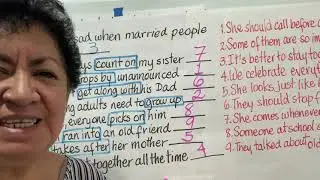 sad when married people
3
ys count on my sister 7
rops by unannounced 1
get along with his Dad 6
ng adults need to grow up 2
everyone picks on him 8
ran into an old friend 9
takes after her mother 5
together all the time 4
1. She should call before
2. Some of them are so im
3. It's better to stay tog
4. We celebrate every
5. She looks just like h
6. They should stop f
7. She comes whenever
8. Someone at school
9. They talked about old